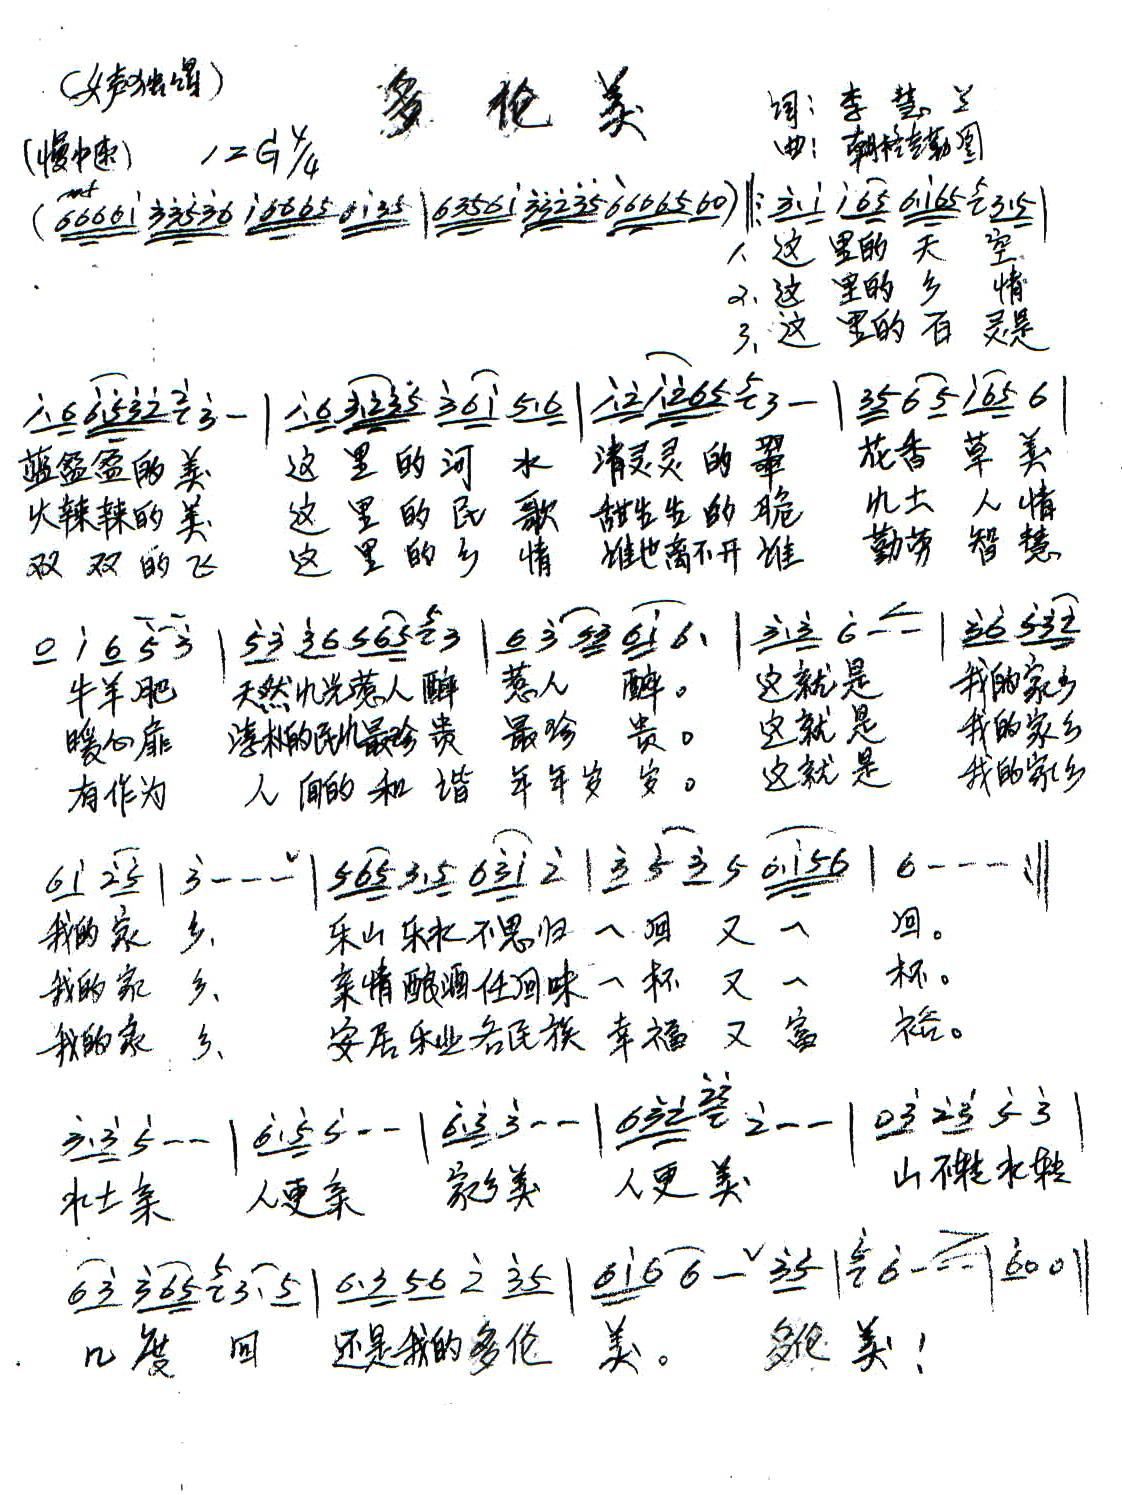 (女声独唱)
多伦美
词：李慧兰
(慢中速) 1=G 4/4
曲：朝格吉勒图
mf
(66661 33536 16665 6135 | 63561 33235 6666560) ‖: 3.1 165 6165 3.5 |
1、这里的天空
2、这里的乡情
3、这里的百灵是
1.6 6532 3 — | 1.6 3235 361 5.6 | 1.2 1265 3 — | 35 65 165 6 |
蓝盈盈的美 这里的河水 清灵灵的翠 花香草美
火辣辣的美 这里的民歌 甜生生的脆 九土人情
双双的飞 这里的乡情 谁也离不开谁 勤劳智慧
0 1 6 5 3 | 53 36 5655 3 | 63 53 61 6. | 3.3 6 — — | 36 532 |
牛羊肥 天然九光惹人醉 惹人醉。 这就是 我的家乡
暖心扉 淳朴的民九最珍贵 最珍贵。 这就是 我的家乡
有作为 人间的和谐 年年岁岁。 这就是 我的家乡
61 25 | 3 - - - | 565 3.5 631 2 | 3 5 3 5 6.156 | 6 - - - :‖
我的家乡、 乐山乐水不思归 一回又一回。
我的家乡、 亲情酿酒任回味 一杯又一杯。
我的家乡、 安居乐业各民族 幸福又富裕。
3.3 5 — — | 6.5 5 - - | 6.3 3 - - | 632 2 — — | 03 23 5 3 |
水土亲 人更亲 家乡美 人更美 山不转水转
63 365 3.5 | 6.3 56 2 35 | 6166 — 35 | 6 - - - | 600 ‖
几度回 还是我的多伦美。 多伦美！